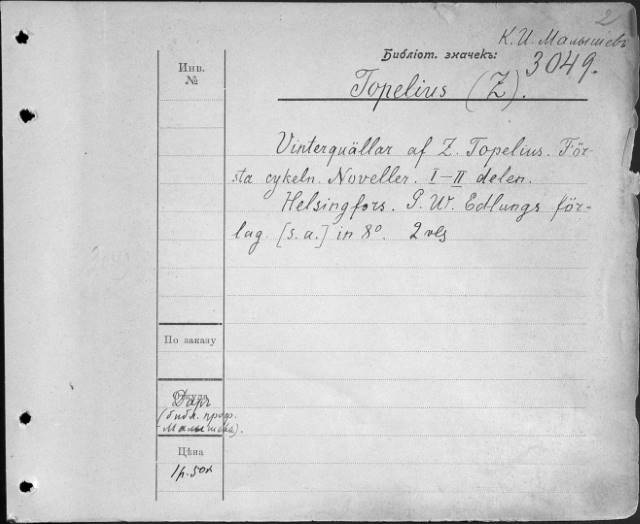 2
К. И. Малышевъ
Библіот. значекъ:
3049.
Инв.
№
Topelius (Z).
Vinterquällar af Z. Topelius. För-
sta cykeln. Noveller. I–II delen.
Helsingfors. P. W. Edlungs för-
lag [s. a.] in 8º. 2 vls
По заказу
Откуда
Даръ
(библ. проф.
Малышева).
Цѣна
1р. 50к